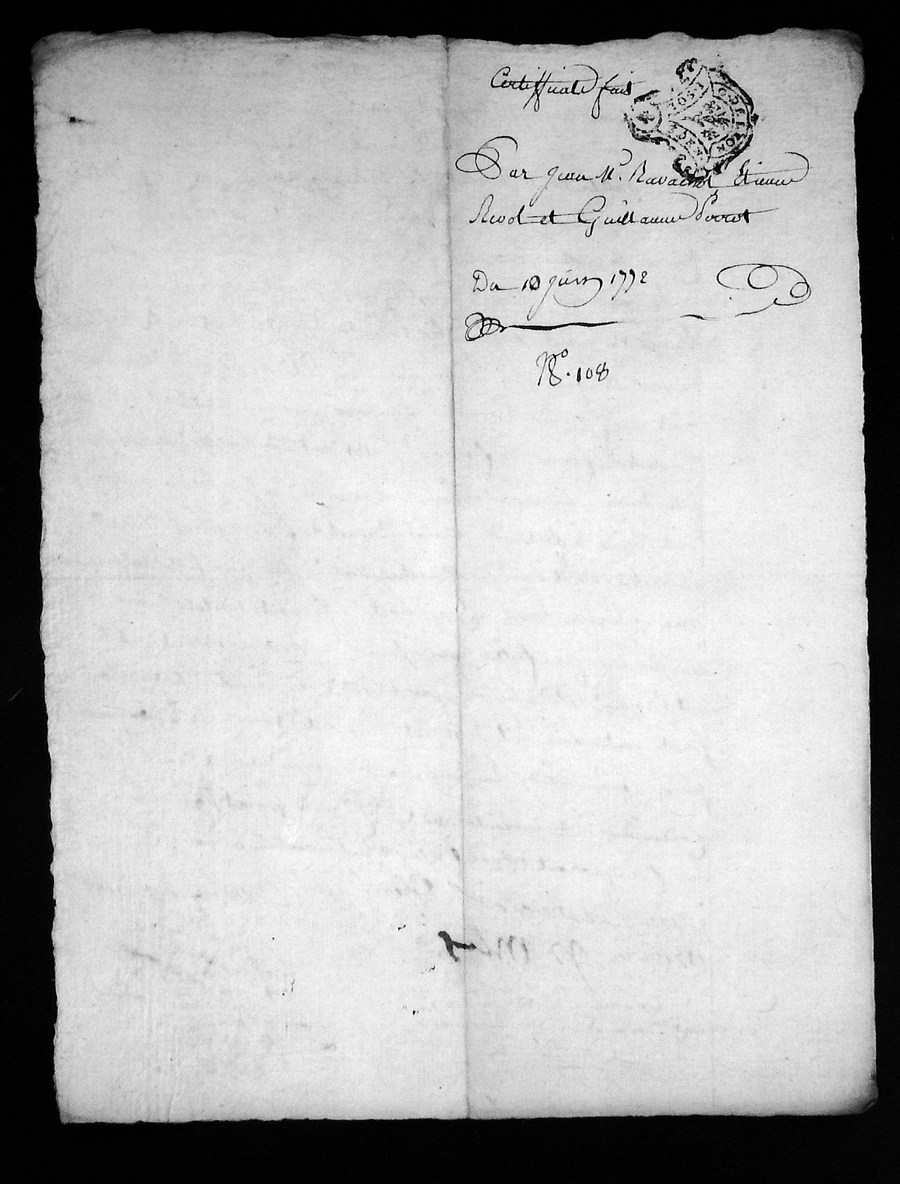 Certifficate fait
Par Jean M.e Ravachol Etienne
Revol et Guillaume Perrot
Du 10 juin 1772
N.o 108